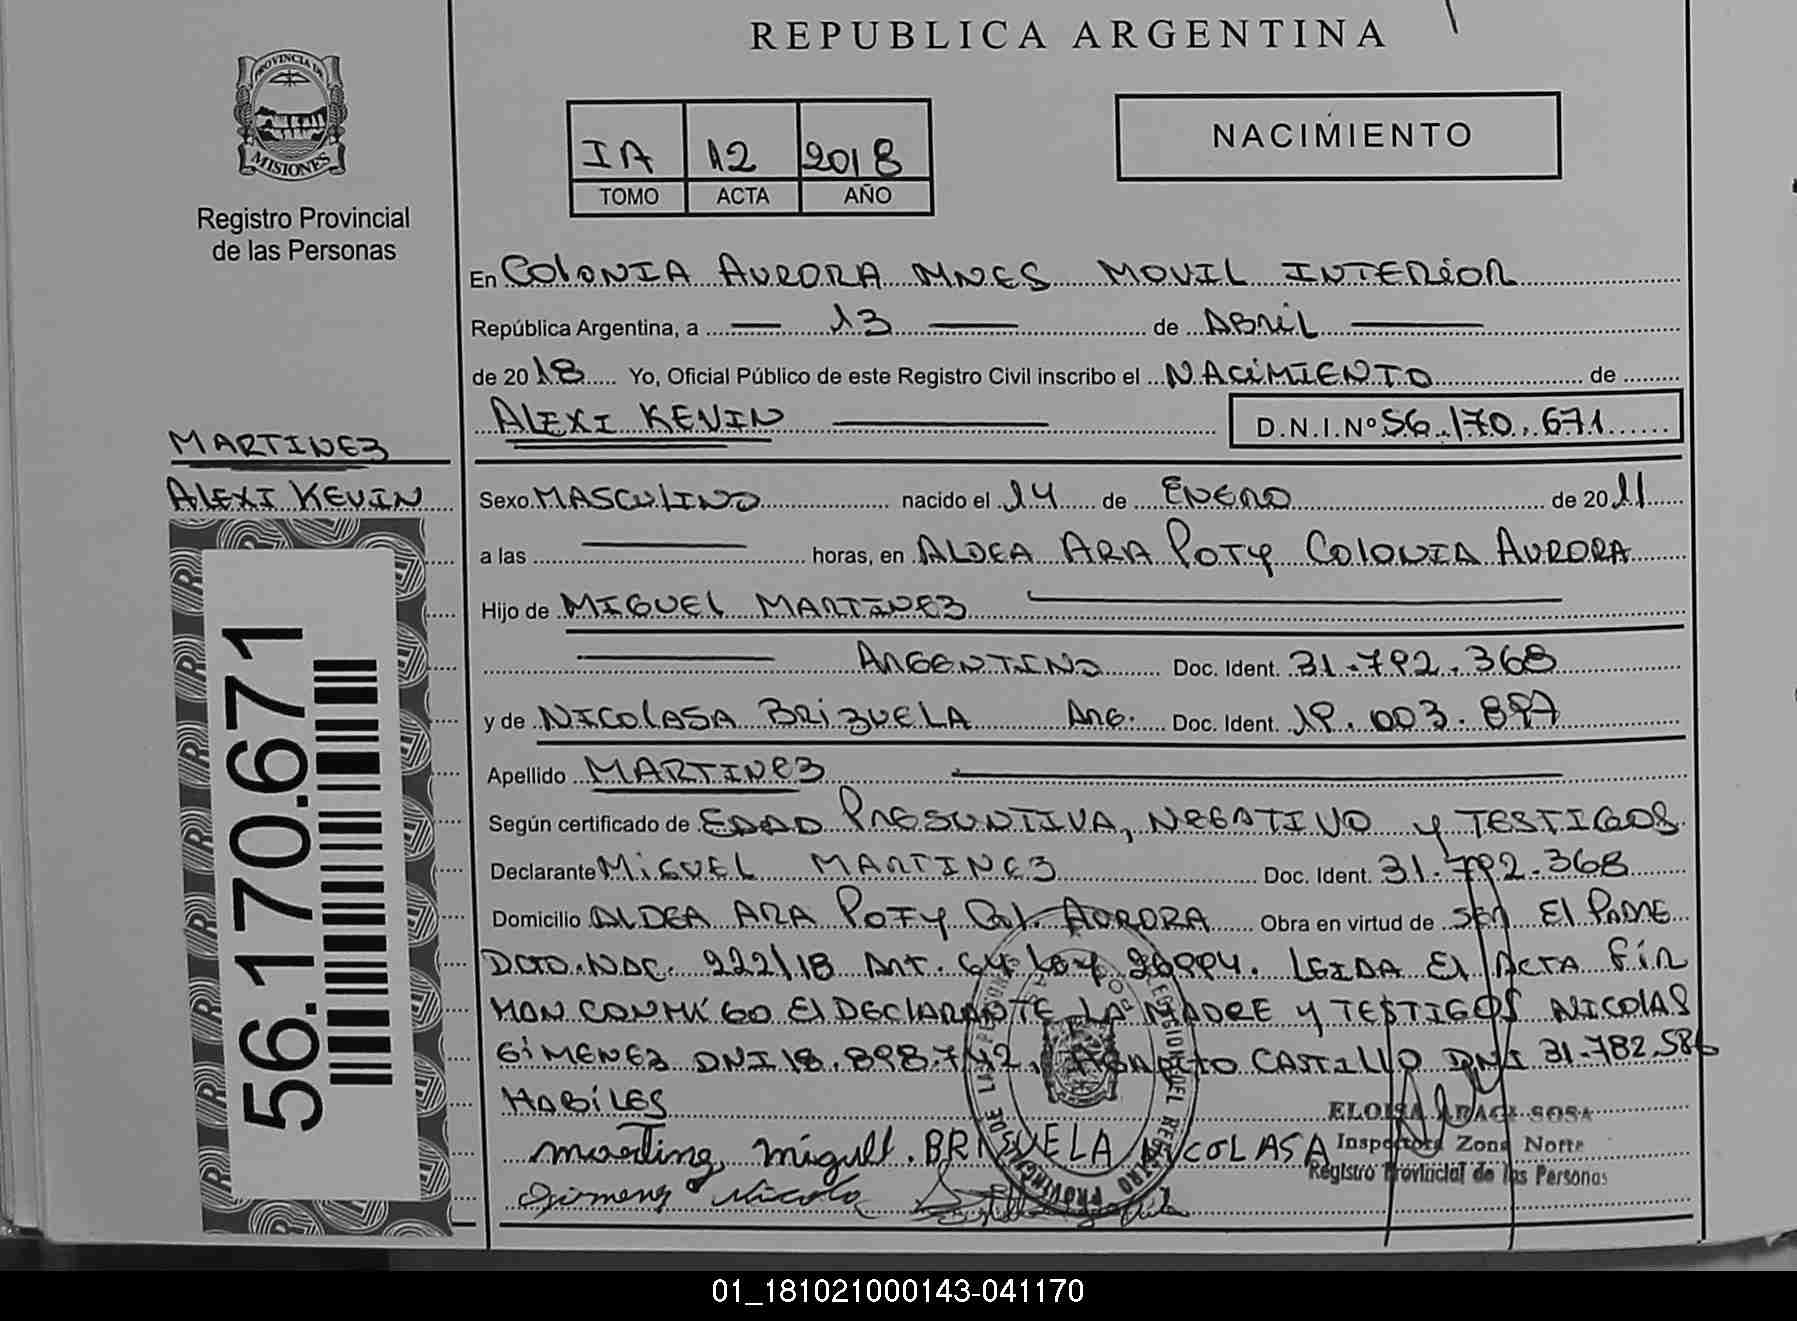 REPUBLICA ARGENTINA
PROVINCIA DE
MISIONES
Registro Provincial
de las Personas
IA 12 2018
TOMO ACTA AÑO
NACIMIENTO
En COLONIA AURORA MNES MOVIL INTERIOR
República Argentina, a 13 de ABRIL
de 2018 Yo, Oficial Público de este Registro Civil inscribo el NACIMIENTO de
ALEXI KEVIN D.N.I.Nº 56.170.671
MARTINEZ
ALEXI KEVIN
Sexo MASCULINO nacido el 14 de ENERO de 2011
a las horas, en ALDEA ARA POTY COLONIA AURORA
Hijo de MIGUEL MARTINEZ
ARGENTINO Doc. Ident. 31.792.368
y de NICOLASA BRIZUELA ARG. Doc. Ident. 19.003.897
Apellido MARTINEZ
Según certificado de EDAD PRESUNTIVA, NEGATIVO y TESTIGOS
Declarante MIGUEL MARTINEZ Doc. Ident. 31.792.368
Domicilio ALDEA ARA POTY Col. AURORA Obra en virtud de SER El PADRE
DCTO. NAC. 222/18 ART. 64 LEY 26994. LEIDA El ACTA FIR
MAN CONMIGO El DECLARANTE LA MADRE y TESTIGOS NICOLAS
GIMENEZ DNI 18.898.742, CASTILLO DNI 31.782.586
HABILES
martinez miguel. BRISUELA NICOLASA
56.170.671
Inspectora Zona Norte
Registro Provincial de las Personas
01_181021000143-041170